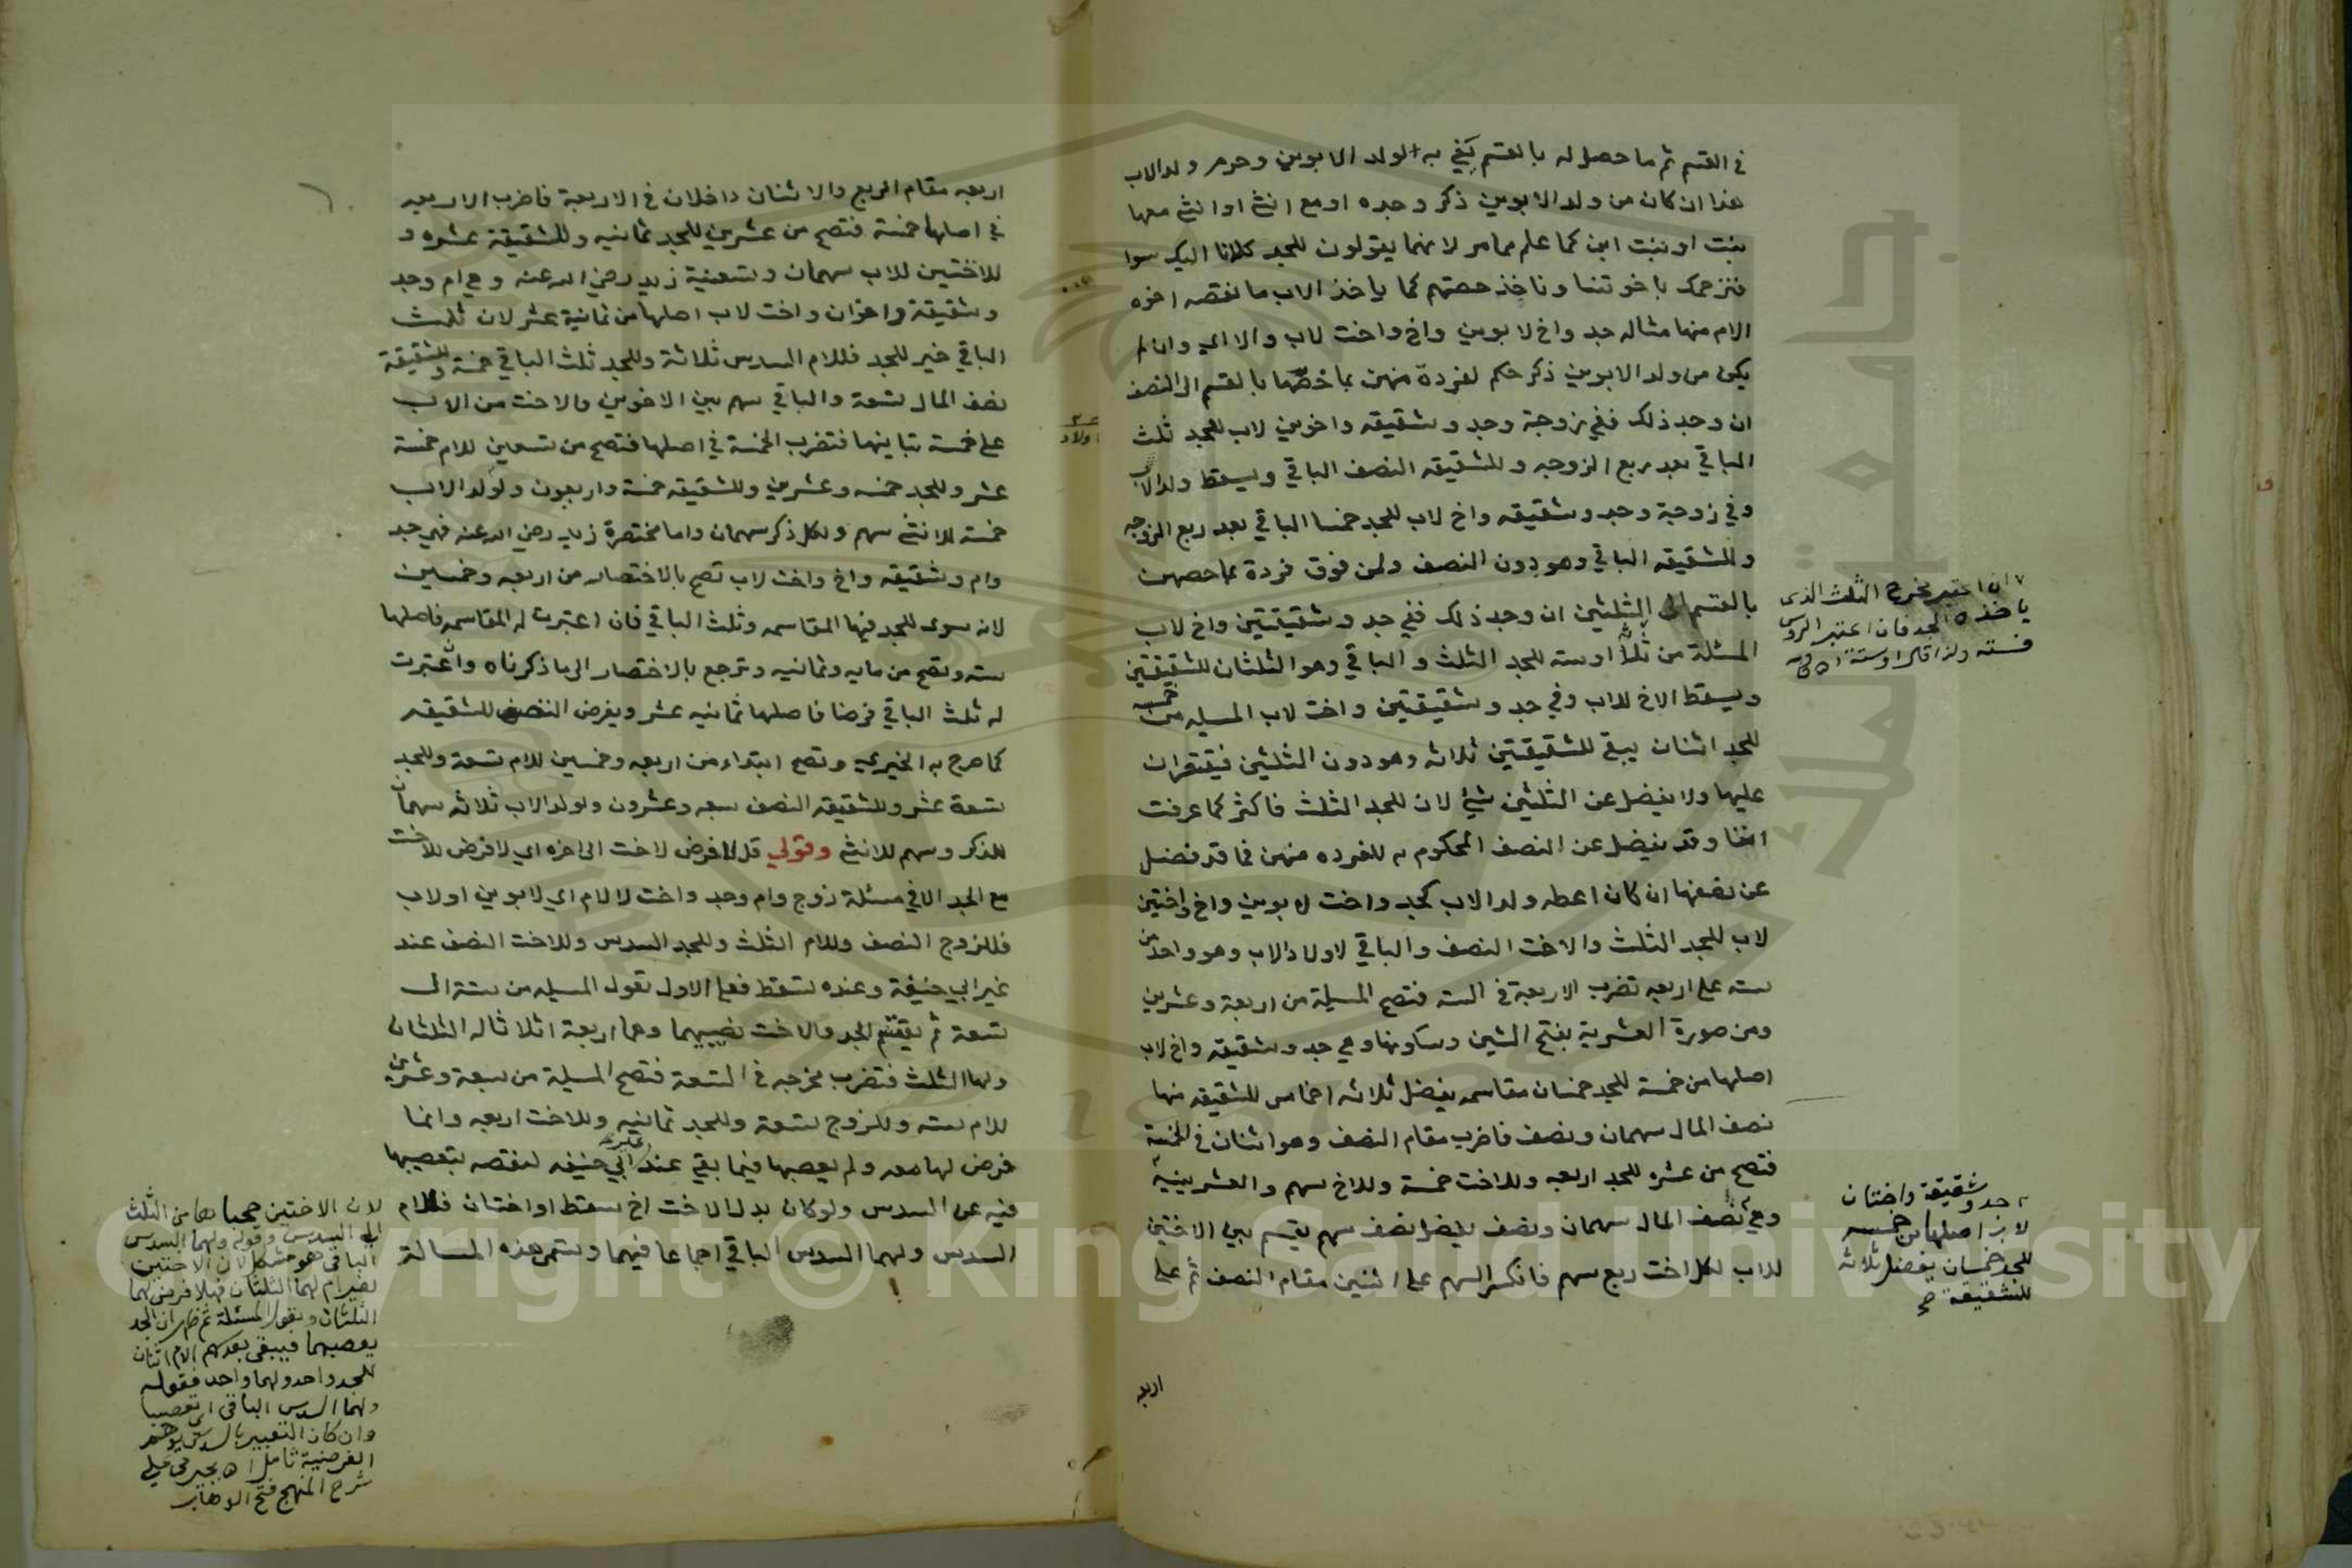 في القسم ثم ما حصل له بالقسم يفي به لولد الابوين وحرم ولد الاب
هذا ان كان من ولد الابوين ذكر وحده او مع انثى او انثى معها
بنت او بنت ابن كما علم مما مر لانهما يقولون للجد كلانا اليك سوا
فنزحمك باخوتنا وناخذ حصتهم كما ياخذ الاب ما نقصه اخوه
الام منها مثاله جد واخ لابوين واخ واخت لاب والا اي وان لم
يكن من ولد الابوين ذكر حكم لفردة منهن بما خصها بالقسم الى النصف
ان وجد ذلك ففي زوجة وجد وشقيقه واخوين لاب للجد ثلث
الباقي بعد ربع الزوجه وللشقيقه النصف الباقي ويسقط ولد الاب
وفي زوجة وجد وشقيقه واخ لاب للجد خمسا الباقي بعد ربع الزوجه
وللشقيقه الباقي وهو دون النصف ولمن فوق فردة بما خصهن
بالقسم الى الثلثين ان وجد ذلك ففي جد وشقيقتين واخ لاب
المسئلة من ثلاثة او سته للجد الثلث والباقي وهو الثلثان للشقيقتين
ويسقط الاخ للاب وفي جد وشقيقتين واخت لاب المسيله من خمسه
للجد اثنان يبقى للشقيقتين ثلاثه وهو دون الثلثين فيقتصران
عليها ولا يفضل عن الثلثين شيئ لان للجد الثلث فاكثر كما عرفت
انفا وقد يفضل عن النصف المحكوم به للفرده منهن فما قد فضل
عن نصفها ان كان اعطه ولد الاب كجد واخت لابوين واخ واختين
لاب للجد الثلث والاخت النصف والباقي لاولاد الاب وهو واحد من
سته على اربعه تضرب الاربعة في الستة فتصح المسيلة من اربعة وعشرين
ومن صورة العشرية بفتح الشين وسكونها وهي جد وشقيقه واخ لاب
اصلها من خمسة للجد خمسان مقاسمه يفضل ثلاثه اخماس للشقيقه منها
نصف المال سهمان ونصف فاضرب مقام النصف وهو اثنان في الخمسة
فتصح من عشره للجد اربعه وللاخت خمسة وللاخ سهم والعشرينية
وهي نصف المال سهمان ونصف يفضل نصف سهم يقسم بين الاختين
للاب لكل اخت ربع سهم فانكسر السهم على اثنين مقام النصف ثم على
اربعه
ان اعتبر مخرج الثلث الذي
ياخذه الجد فان اعتبر الروس
فسته ولذا قال او ستة اه
جد وشقيقة واختان
لاب اصلها من خمسه
للجد خمسان يفضل ثلاثه
للشقيقة صح
اولاد
اربعه مقام الربع والاثنان داخلان في الاربعة فاضرب الاربعه
في اصلها خمسة فتصح من عشرين للجد ثمانيه وللشقيقة عشره و
للاختين للاب سهمان وتسعنية زيد رضي الله عنه وهي ام وجد
وشقيقة واخوان واخت لاب اصلها من ثمانية عشر لان ثلث
الباقي خير للجد فللام السدس ثلاثة وللجد ثلث الباقي خمسة وللشقيقة
نصف المال تسعة والباقي سهم بين الاخوين والاخت من الاب
على خمسة تباينها فتضرب الخمسة في اصلها فتصح من تسعين للام خمسة
عشر وللجد خمسه وعشرين وللشقيقه خمسة واربعون ولولد الاب
خمسة للانثى سهم ولكل ذكر سهمان واما مختصرة زيد رضي الله عنه فهي جد
وام وشقيقه واخ واخت لاب تصح بالاختصار من اربعه وخمسين
لانه سوى للجد فيها المقاسمه وثلث الباقي فان اعتبرت له المقاسمه فاصلها
سته وتصح من مايه وثمانيه وترجع بالاختصار الى ما ذكرناه وان اعتبرت
له ثلث الباقي فرضا فاصلها ثمانيه عشر ويفرض النصف للشقيقه
كما صرح به الخبري وتصح ابتداء من اربعه وخمسين للام تسعة وللجد
تسعة عشر وللشقيقه النصف سبعه وعشرون ولولد الاب ثلاثه سهمان
للذكر وسهم للانثى وقولي قل لا فرض لاخت الى اخره اي لا فرض للاخت
مع الجد الا في مسئلة زوج وام وجد واخت لا لام اي لابوين او لاب
فللزوج النصف وللام الثلث وللجد السدس وللاخت النصف عند
غير ابي حنيفة وعنده تسقط فعلى الاول تعول المسيله من ستة الى
تسعة ثم يقتسم الجد والاخت نصيبهما وهما اربعة اثلاثا له الثلثان
ولها الثلث فتضرب مخرجه في التسعة فتصح المسيلة من سبعة وعشرين
للام سته وللزوج تسعة وللجد ثمانيه وللاخت اربعه وانما
فرض لها معه ولم يعصبها فيما بقي عند غير ابي حنيفه لنقصه بتعصيبها
فيه عن السدس ولو كان بدل الاخت اخ سقط او اختان فللام
السدس ولهما السدس الباقي اجماعا فيهما وتسمى هذه المسالة
لان الاختين حجباها من الثلث
الى السدس وقوله ولهما السدس
الباقي هو مشكل لان الاختين
لغير ام لهما الثلثان فهلا فرض لهما
الثلثان وتعول المسئلة ثم ظهر ان الجد
يعصبهما فيبقى بعد سهم الام اثنان
للجد واحد ولهما واحد فقوله
ولهما السدس الباقي اي تعصيبا
وان كان التعبير بالسدس يوهم
الفرضية تامل اه بجيرمي على
شرح المنهج فتح الوهاب
Copyright © King Saud University